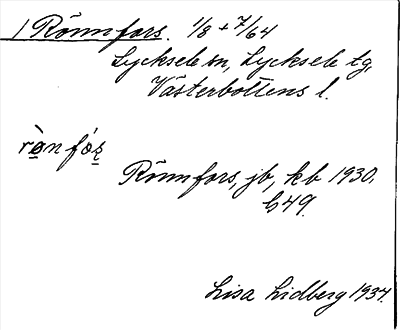 1 Rönnfors. 1/8 + 7/64
Lycksele sn, Lycksele tg,
Västerbottens l.
rø̀n fó̱ʂ
Rönnfors, jb, kb 1930,
G49.
Lisa Lidberg 1934.